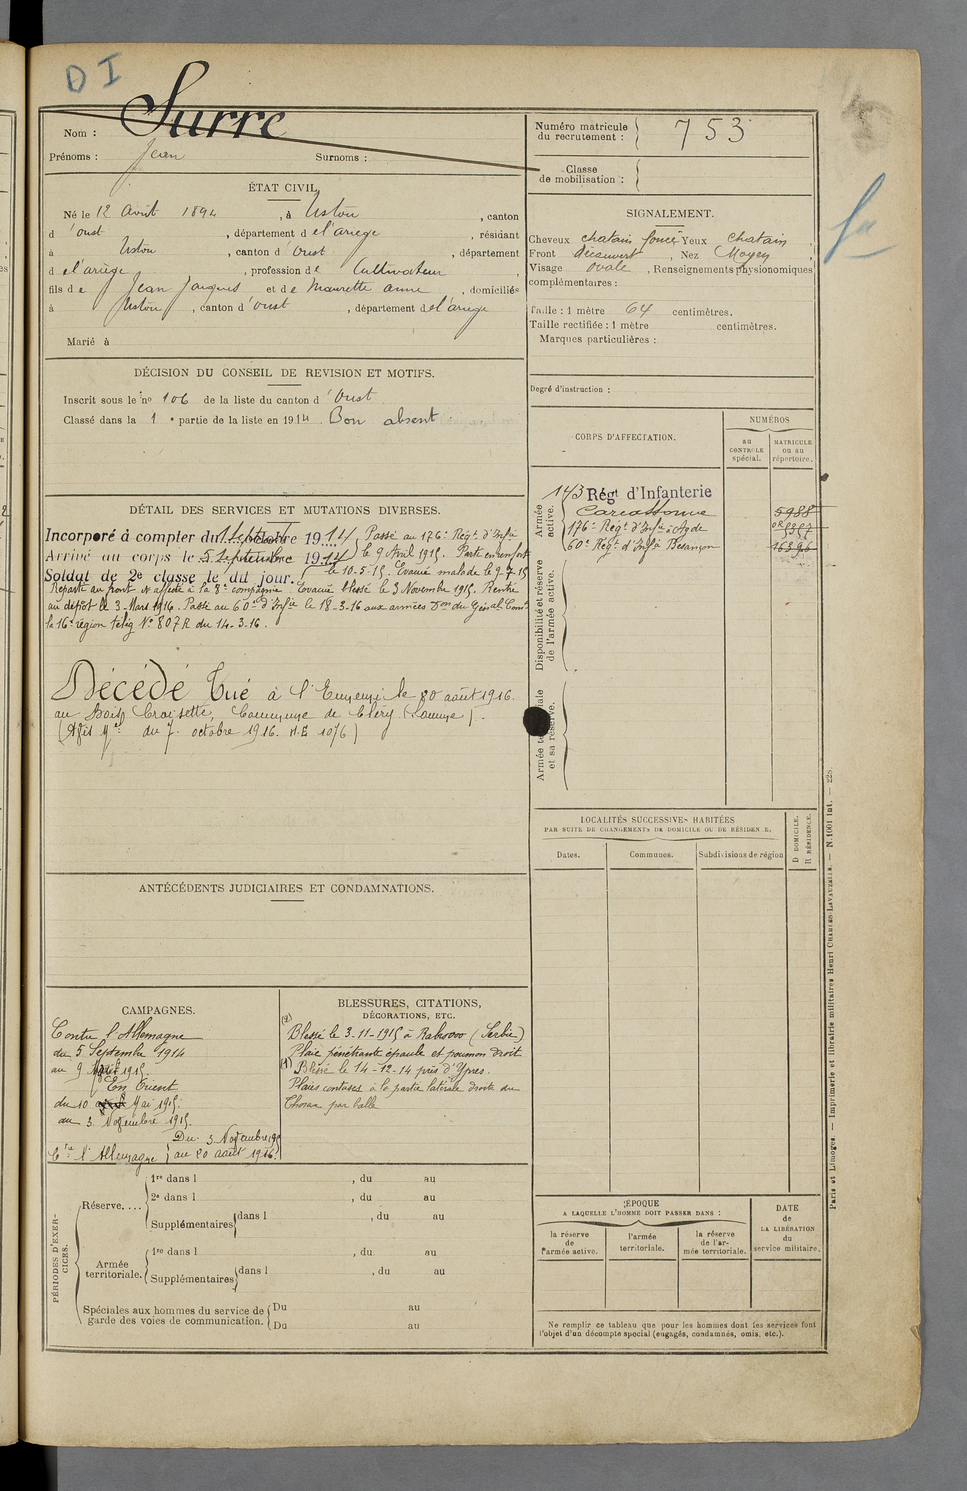 D I
Nom : Surre
Prénoms : Jean Surnoms :
Numéro matricule du recrutement : 753
Classe de mobilisation :
ÉTAT CIVIL.
Né le 12 Avril 1894, à Ustou, canton
d'oust, département de l'ariège, résidant
à Ustou, canton d'Oust, département
de l'ariège, profession de Cultivateur,
fils de Jean Jacques et de Maurette anne, domiciliés
à Ustou, canton d'oust, département de l'ariège
Marié à
SIGNALEMENT.
Cheveux chatain foncé Yeux chatain,
Front découvert, Nez Moyen,
Visage ovale, Renseignements physionomiques
complémentaires :
Taille : 1 mètre 64 centimètres.
Taille rectifiée : 1 mètre centimètres.
Marques particulières :
Degré d'instruction :
DÉCISION DU CONSEIL DE REVISION ET MOTIFS.
Inscrit sous le no 106 de la liste du canton d'Oust
Classé dans la 1e partie de la liste en 1914. Bon absent
DÉTAIL DES SERVICES ET MUTATIONS DIVERSES.
Incorporé à compter du 1 Septembre 1914 Passé au 176e Régt d'Infie
Arrivé au corps le 5 Septembre 1914 le 9 Avril 1915. Parti en renfort
Soldat de 2e classe le dit jour. le 10-5-15. Evacué malade le 9-7-15
Reparti au front et affecté à la 8e compagnie Evacué blessé le 3 Novembre 1915. Rentré
au dépôt le 3 Mars 1916. Passé au 60e d'Infie le 18-3-16 aux armées Don du Général Comt
la 16e région télég No 807 R du 14-3-16.
Décédé Tué à l'Ennemi le 20 août 1916.
au Bois Croisette, Commune de Cléry (Somme).
(Avis Mel du 7 octobre 1916. M.E 1076)
CORPS D'AFFECTATION.
NUMÉROS
au CONTROLE spécial.
MATRICULE ou au répertoire.
Armée active.
143 Régt d'Infanterie
Carcassonne 5988
176e Régt d'Infie Agde
60e Régt d'Infie Besançon 16396
Disponibilité et réserve de l'armée active.
Armée territoriale et sa réserve.
LOCALITÉS SUCCESSIVES HABITÉES
PAR SUITE DE CHANGEMENTS DE DOMICILE OU DE RÉSIDENCE.
Dates. Communes. Subdivisions de région
D DOMICILE.
R RÉSIDENCE.
ANTÉCÉDENTS JUDICIAIRES ET CONDAMNATIONS.
CAMPAGNES.
Contre l'Allemagne
du 5 Septembre 1914
au 9 Mai 1915.
En Orient
du 10 Mai 1915.
au 3 Novembre 1915.
Ctre l'Allemagne Du 3 Novembre 1915
au 20 août 1916.
BLESSURES, CITATIONS,
DÉCORATIONS, ETC.
(2) Blessé le 3-11-1915 à Rabrovo (Serbie)
Plaie pénétrante épaule et poumon droit
(1) Blessé le 14-12-14 près d'Ypres.
Plaies contuses à la partie latérale droite du
Thorax par balle
PÉRIODES D'EXERCICES.
Réserve....
1re dans l , du au
2e dans l , du au
Supplémentaires dans l , du au
Armée territoriale.
1re dans l , du au
Supplémentaires dans l , du au
Spéciales aux hommes du service de garde des voies de communication.
Du au
Du au
ÉPOQUE
A LAQUELLE L'HOMME DOIT PASSER DANS :
la réserve de l'armée active.
l'armée territoriale.
la réserve de l'armée territoriale.
DATE de LA LIBÉRATION du service militaire.
Ne remplir ce tableau que pour les hommes dont les services font
l'objet d'un décompte spécial (engagés, condamnés, omis, etc.).
Paris et Limoges. — Imprimerie et librairie militaires Henri CHARLES-LAVAUZELLE. — N. 1001 Int. — 228.